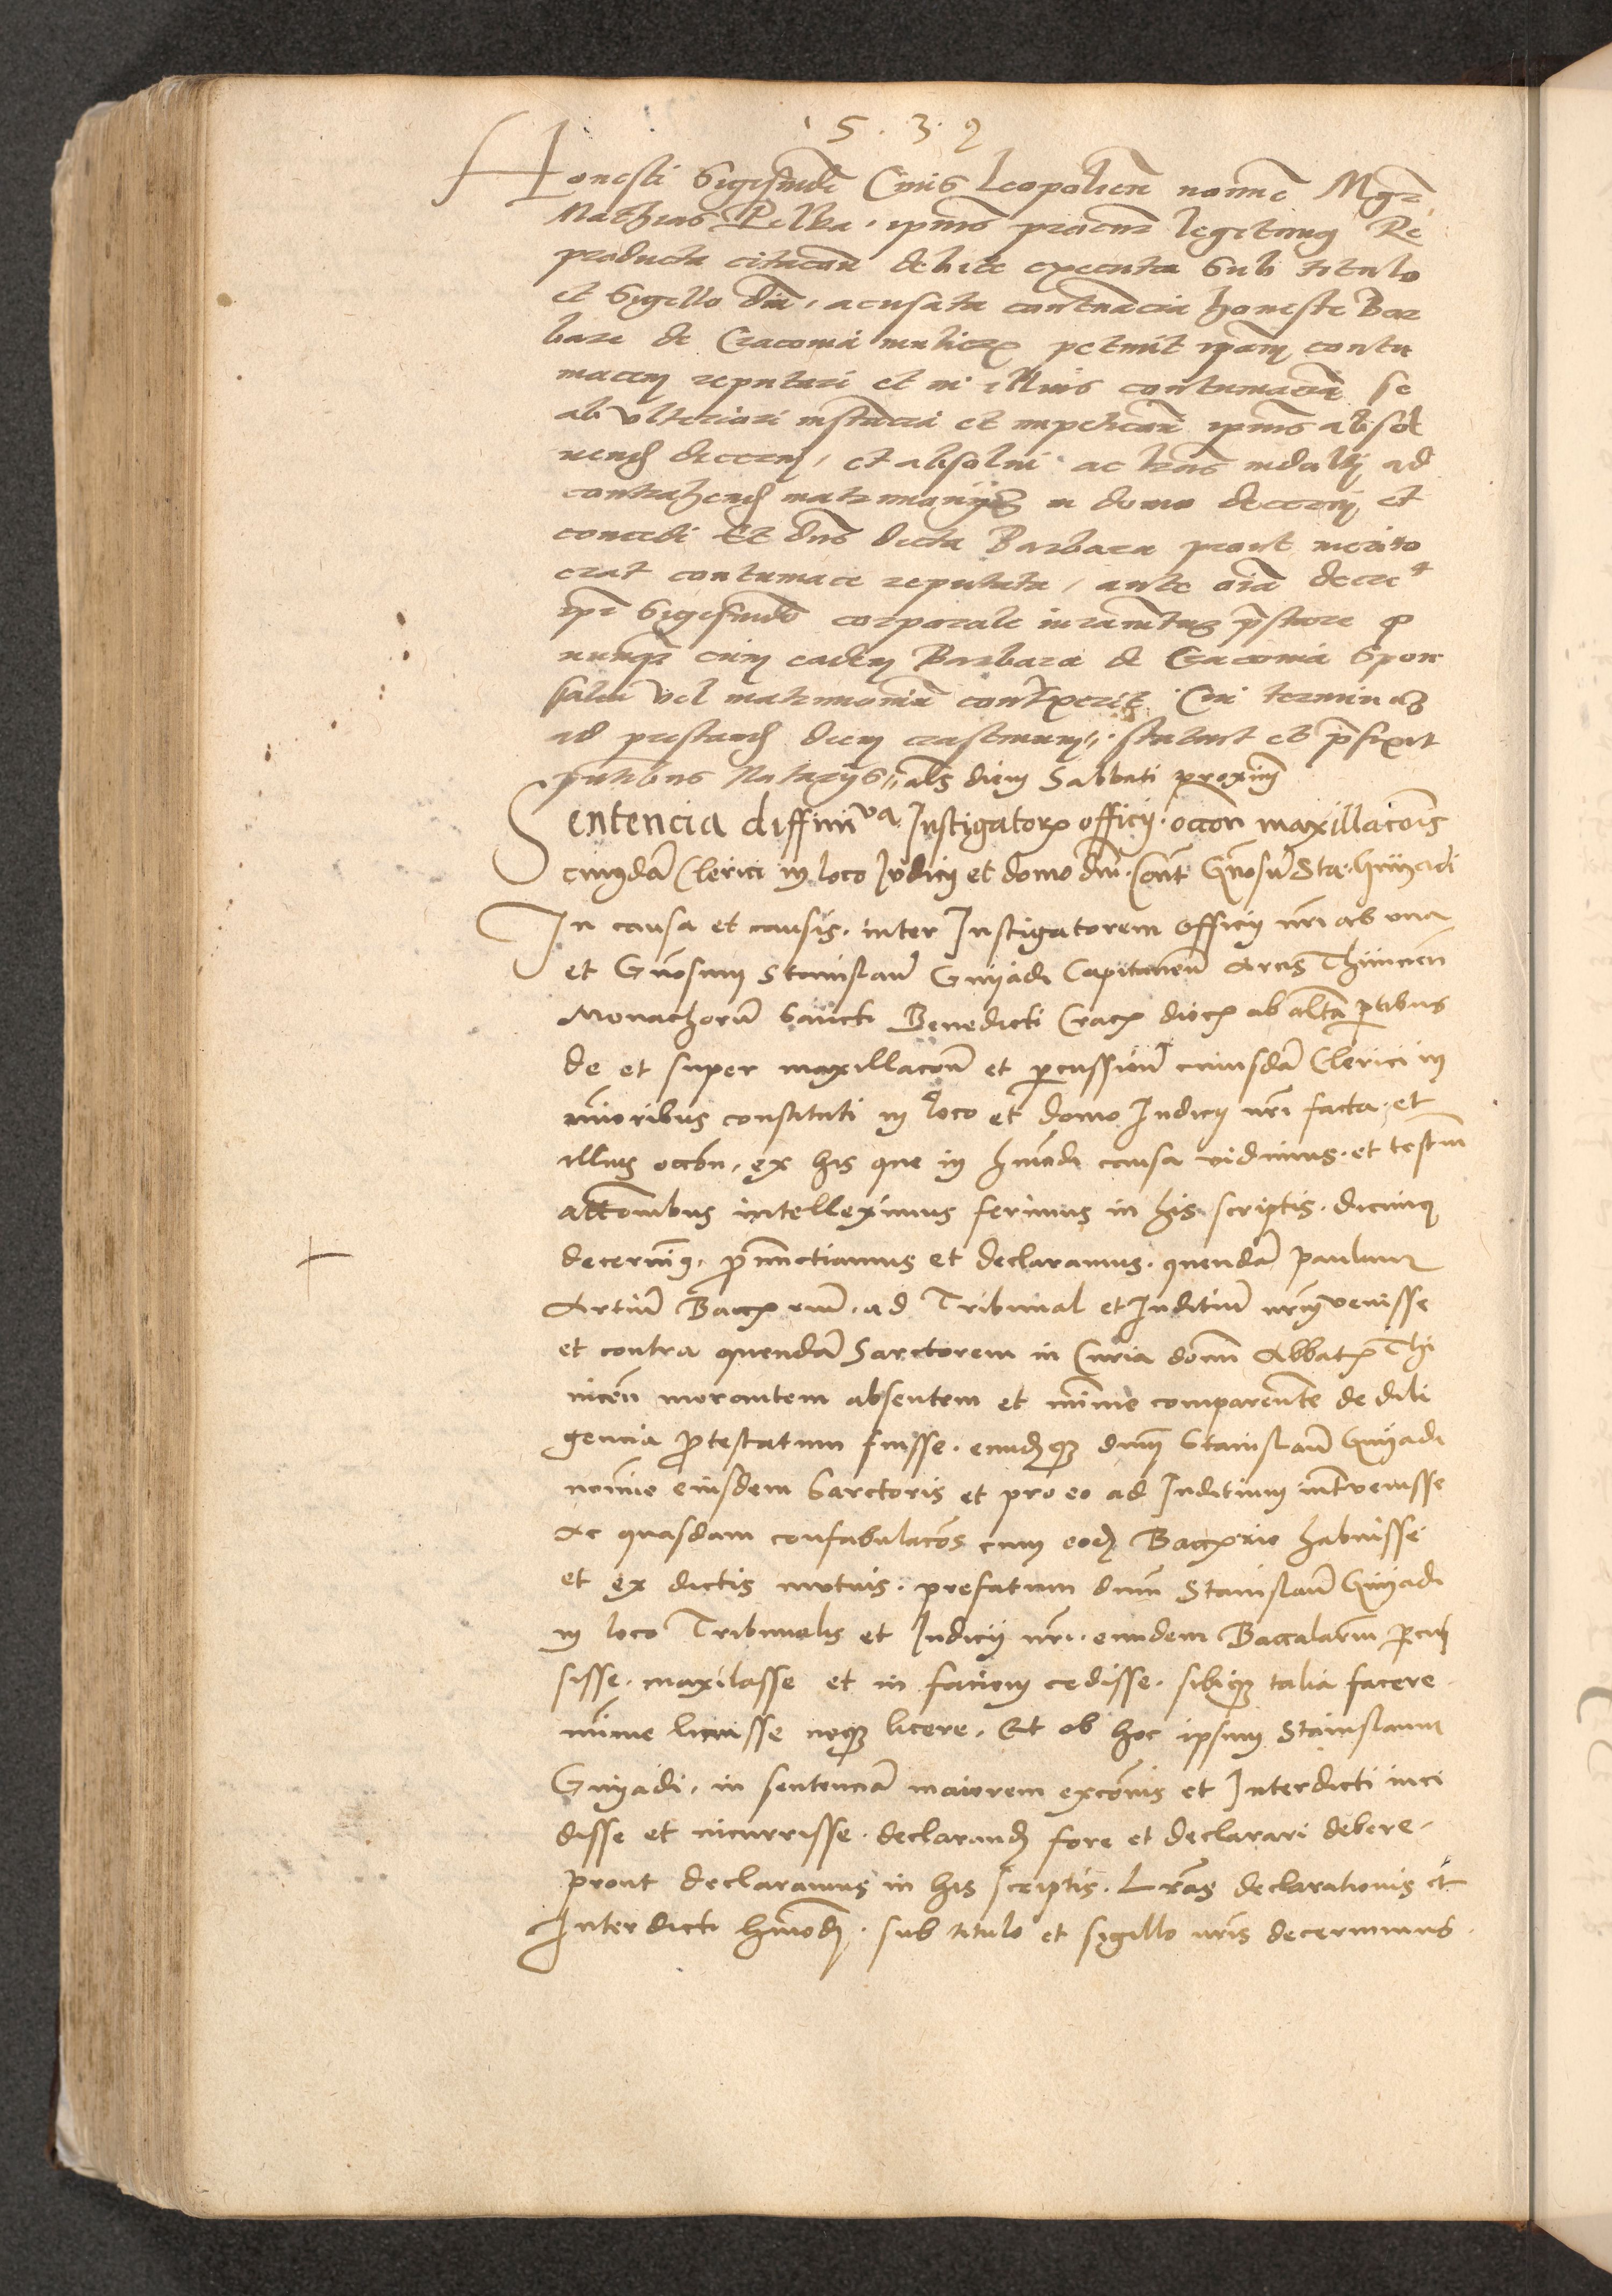 1 5 . 3 . 2
Honesti Sigismūdi Civis Leopolien̄ nomine Mgr̄
Mathias Pelka . ipius procur̄ legitimus Re
producta citacōne debite executa sub titulo
et Sigillo dn̄i , acusata contumacia honeste Bar
bare de Cracovia mulieris petivit ipam contu
macem reputari et in illius contumaciā se
ab ulteriori instancia et impeticōne ipius absol
vend decerni , et absolvi ac lras ad
contrahend matrimoniū de novo decerni et
concedi Et dn̄s dicta Barbara prout merito
erat contumace reputata , ante oīa decre
ipi Sigismūdo corporale iuramētum p̄stare q
nunq̄ cum eadem Barbara de Cracovia Spon
salia vel matrimoniū contraxerit . Cui terminū
ad prestand diem crastinum ,, statuit et p̄fixit
p̄ntibus Notarijs ,, als diem Sabbati proximū
Sentencia diffinitiva Instigatoris officij . occōn maxillacōis
cuiusdā Clerici in loco Iudicij et domo dn̄i . cont̄ Gn̄osū Sta : Gniyadi
In causa et causis . inter Instigatorem officij nr̄i ab una
et Gn̄osum Stanislaū Gniyadi Capitaneū Arcis Thinicen̄
Monachorū Sancti Benedicti Crac̄ dioc̄ ab altā ptibus
de et super maxillacōne et p̄cussione cuiusdā Clerici in
minoribus constituti in loco et domo Iudicij nr̄i facta . et
illius occōn . ex his que in hmōdi causa vidimus . et testium
attestacōnibus intelleximus ferimus in his scriptis . dicimus
decernim9 , p̄nunctiamus et declaramus . quendā Paulum
Artium Baccr̄ium . ad Tribunal et Inditiū nr̄um venisse
et contra quendā Sarctorem in Curia domini Abbatis Thi
nicen̄ morantem absentem et minime comparente de dili
gencia p̄testatum fuisse . eundemq̄ dnūm Stanislaū Gniyadi
nomine eiusdem Sarctoris et pro eo ad Inditium intvenisse
Ac quasdam confabulacōes cum eodem Baccr̄io habuisse
et ex dictis motivis . prefatum dnūm Stanislaū Gniyadi
in loco Tribunalis et Iudicij nr̄i . eundem Baccalariū p̄cus
sisse . maxilasse et in faciem cedisse . sibiq̄ talia facere
minime licuisse neq̄ licere . Et ob hoc ipsum Stanislaum
Gniyadi . in sentenciā maiorem excōis et Interdicti inci
disse et incurrisse . declarand fore et declarari debere .
prout declaramus in his scriptis . Lr̄as declarationis et
Interdicti hmōdi . sub titulo et sigillo nr̄is decernimus .